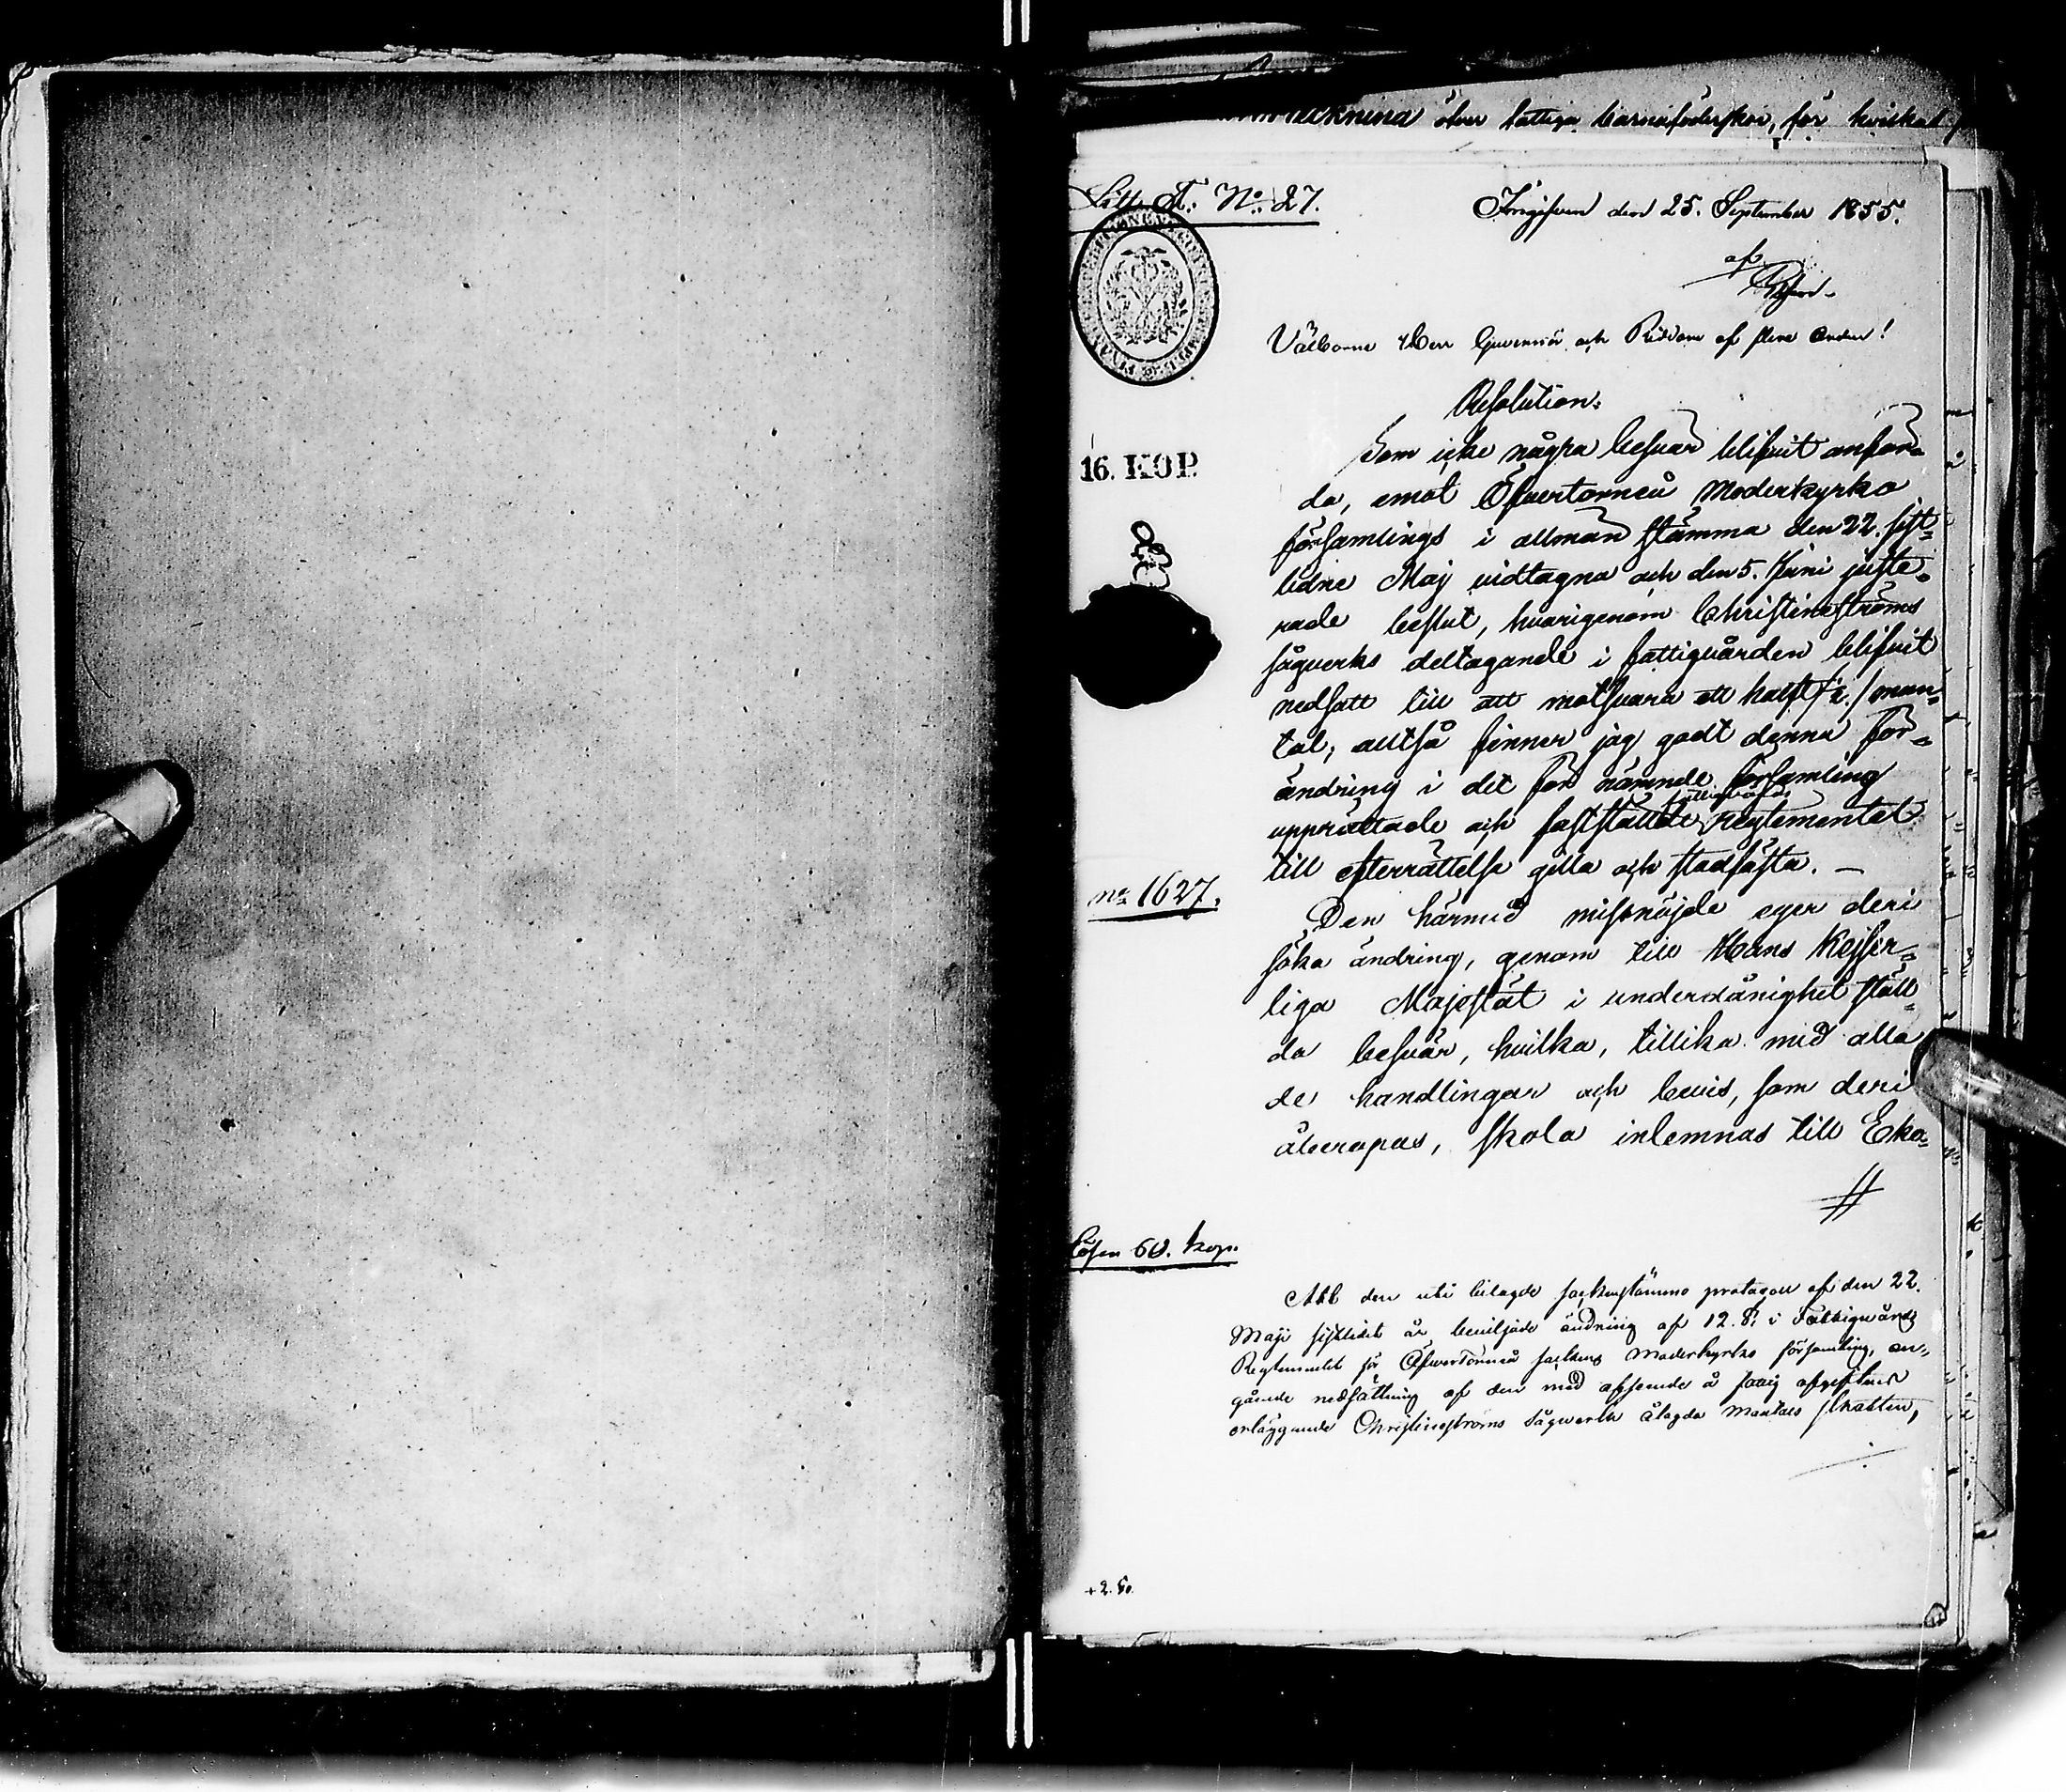 öfver fattiga barnaföderskor, för hvilka
Litt. A: No: 27.
Ingifven den 25. September 1855.
af
Välborne Herr Guvernör och Riddare af flere Orden!
Resolution:
16. KOP.
Som icke några besvär blifvit anför-
da, emot Öfvertorneå Moderkyrko
församlings i allmän stämma den 22. sist-
lidne Maj vidtagna och den 5. Juni juste-
rade beslut, hvarigenom Christineströms
sågverks deltagande i fattigvården blifvit
nedsatt till att motsvara ett halft /½./ man-
tal; alltså finner jag godt denna för-
ändring i det för nämnde församling
fattigvårds
upprättade och fastställde reglementet
till efterrättelse gilla och stadfästa. —
no 1627.
Den härmed missnöjde eger deri
söka ändring, genom till Hans Kejser-
liga Majestät i underdånighet ställ-
da besvär, hvilka, tillika med alla
de handlingar och bevis, som deri
åberopas, skola inlemnas till Eko-
Lösen 60. kop.
Att den uti bilagde sockenstämmo protocoll af den 22.
Maji sistlidet år beviljade ändring af 12. §. i Fattigvårds
Reglementet för Öfvertorneå sockens Moderkyrko församling, an-
gående nedsättning af den med afseende å
erläggande Christineströms Sågverk ålagde Mantals skatten,
+2. 50.